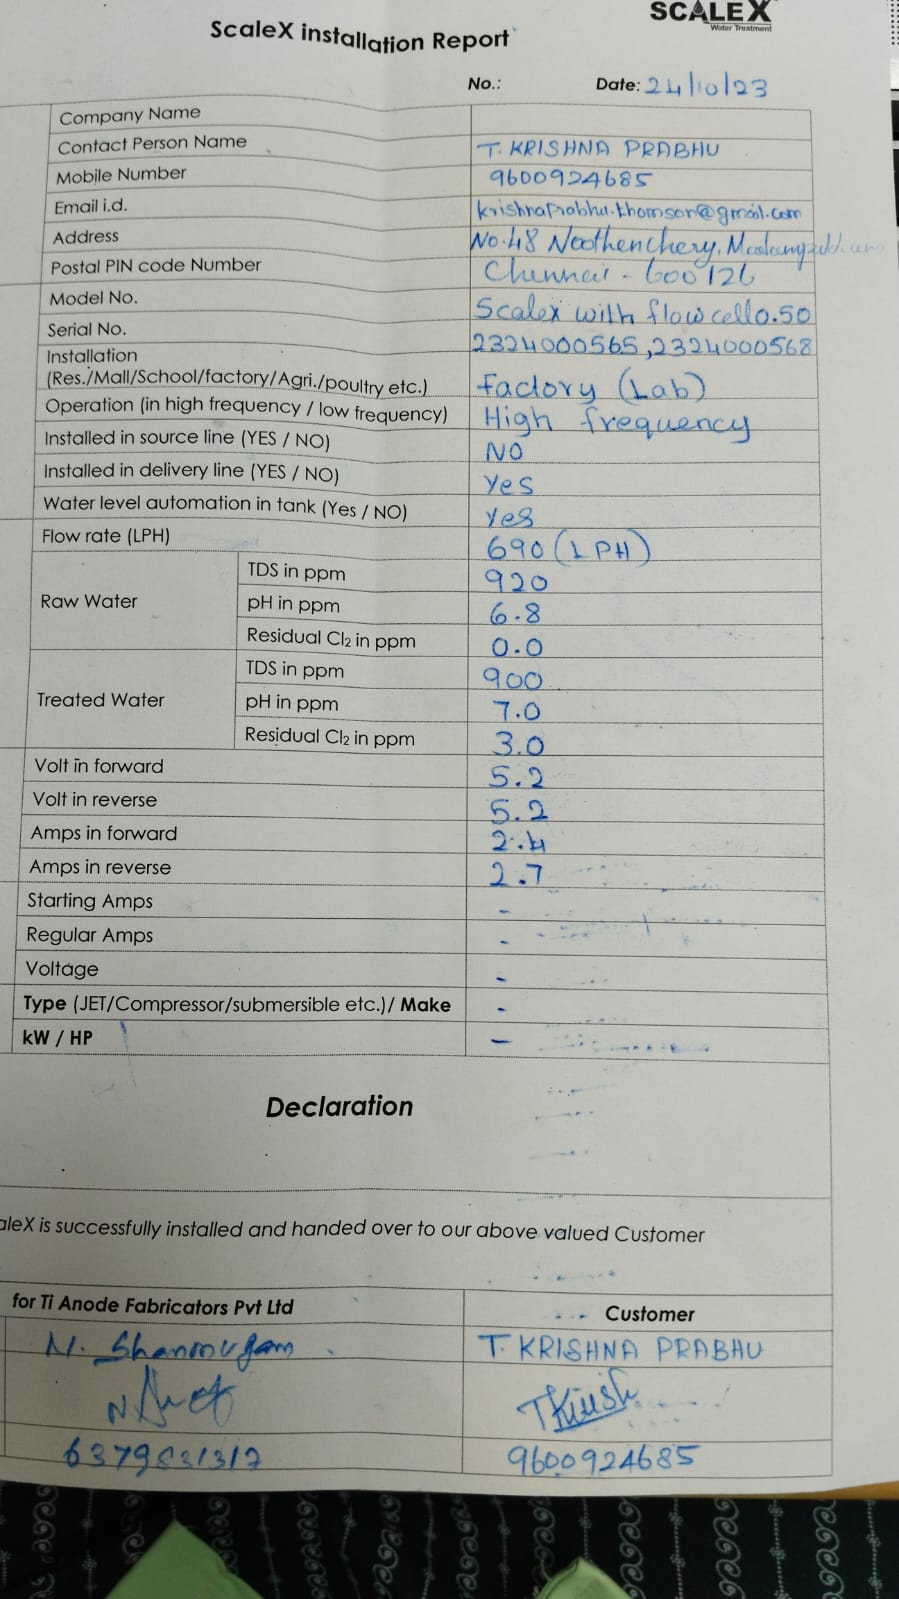 SCALEX
Water Treatment
ScaleX installation Report
No.: Date: 24/10/23
Company Name
Contact Person Name T. KRISHNA PRABHU
Mobile Number 9600924685
Email i.d. krishnaprabhu.thomson@gmail.com
Address No.48 Noothenchery,
Postal PIN code Number Chennai - 600126
Model No. Scalex with flow cell 0.50
Serial No. 2324000565,2324000568
Installation
(Res./Mall/School/factory/Agri./poultry etc.) Factory (Lab)
Operation (in high frequency / low frequency) High frequency
Installed in source line (YES / NO) NO
Installed in delivery line (YES / NO) Yes
Water level automation in tank (Yes / NO) Yes
Flow rate (LPH) 690 (LPH)
Raw Water
TDS in ppm 920
pH in ppm 6.8
Residual Cl2 in ppm 0.0
Treated Water
TDS in ppm 900
pH in ppm 7.0
Residual Cl2 in ppm 3.0
Volt in forward 5.2
Volt in reverse 5.2
Amps in forward 2.4
Amps in reverse 2.7
Starting Amps -
Regular Amps -
Voltage -
Type (JET/Compressor/submersible etc.)/ Make -
kW / HP -
Declaration
aleX is successfully installed and handed over to our above valued Customer
for Ti Anode Fabricators Pvt Ltd Customer
N. Shanmugam T. KRISHNA PRABHU
TKrish
9600924685